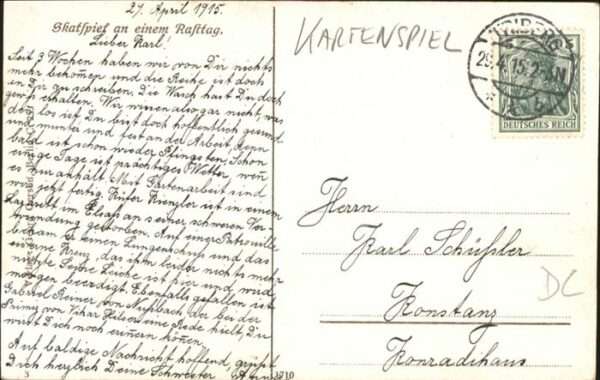 27. April 1915.
Skatspiel an einem Rasttag.
Lieber Karl!
Seit 3 Wochen haben wir von Dir nichts
mehr bekommen und die Reihe ist doch
an Dir zu schreiben. Die Wasch hast Du doch
gewiß erhalten. Wir wissen also gar nicht, was
da los ist. Du bist doch hoffentlich gesund
und munter und fest an der Arbeit, denn
bald ist schon wieder Pfingsten. Schon
einige Tage ist prächtiges Wetter, wenn
es nur anhält. Mit Gartenarbeit sind
wir jetzt fertig. Küfer Kienzler ist in einem
Lazarett im Elsaß an seiner schweren Ver-
wundung gestorben. Auf einer Patrouille
bekam er einen Lungenschuß und das
eiserne Kreuz, das ihm leider nichts mehr
nützte. Seine Leiche ist hier und wird
morgen beerdigt. Ebenfalls gefallen ist
Gabriel Reiner von Nußbach, der bei der
Primiz von Vikar eine Rede hielt, Du
wirst Dich noch erinnern können.
Auf baldige Nachricht hoffend, grüßt
Dich herzlich Deine Schwester
KARTENSPIEL
TRIBERG
29.4.15. 2-3N
DEUTSCHES REICH
Herrn
Karl Schüßler
Konstanz
Konradihaus
DC